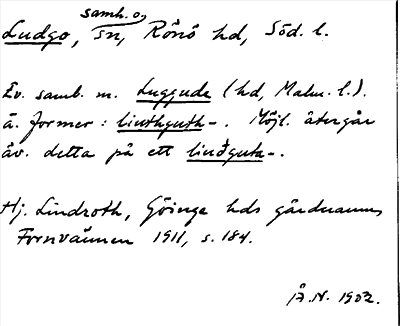 samh. o.
Ludgo, sn, Rönö hd, Söd. l.
Ev. samb. m. Luggude (hd, Malm. l.).
ä. former: liuthguth-. Möjl. återgår
äv. detta på ett liuðguta-.
Hj. Lindroth, Göinge hds gårdnamn
Fornvännen 1911, s. 184.
Å.N. 1902.